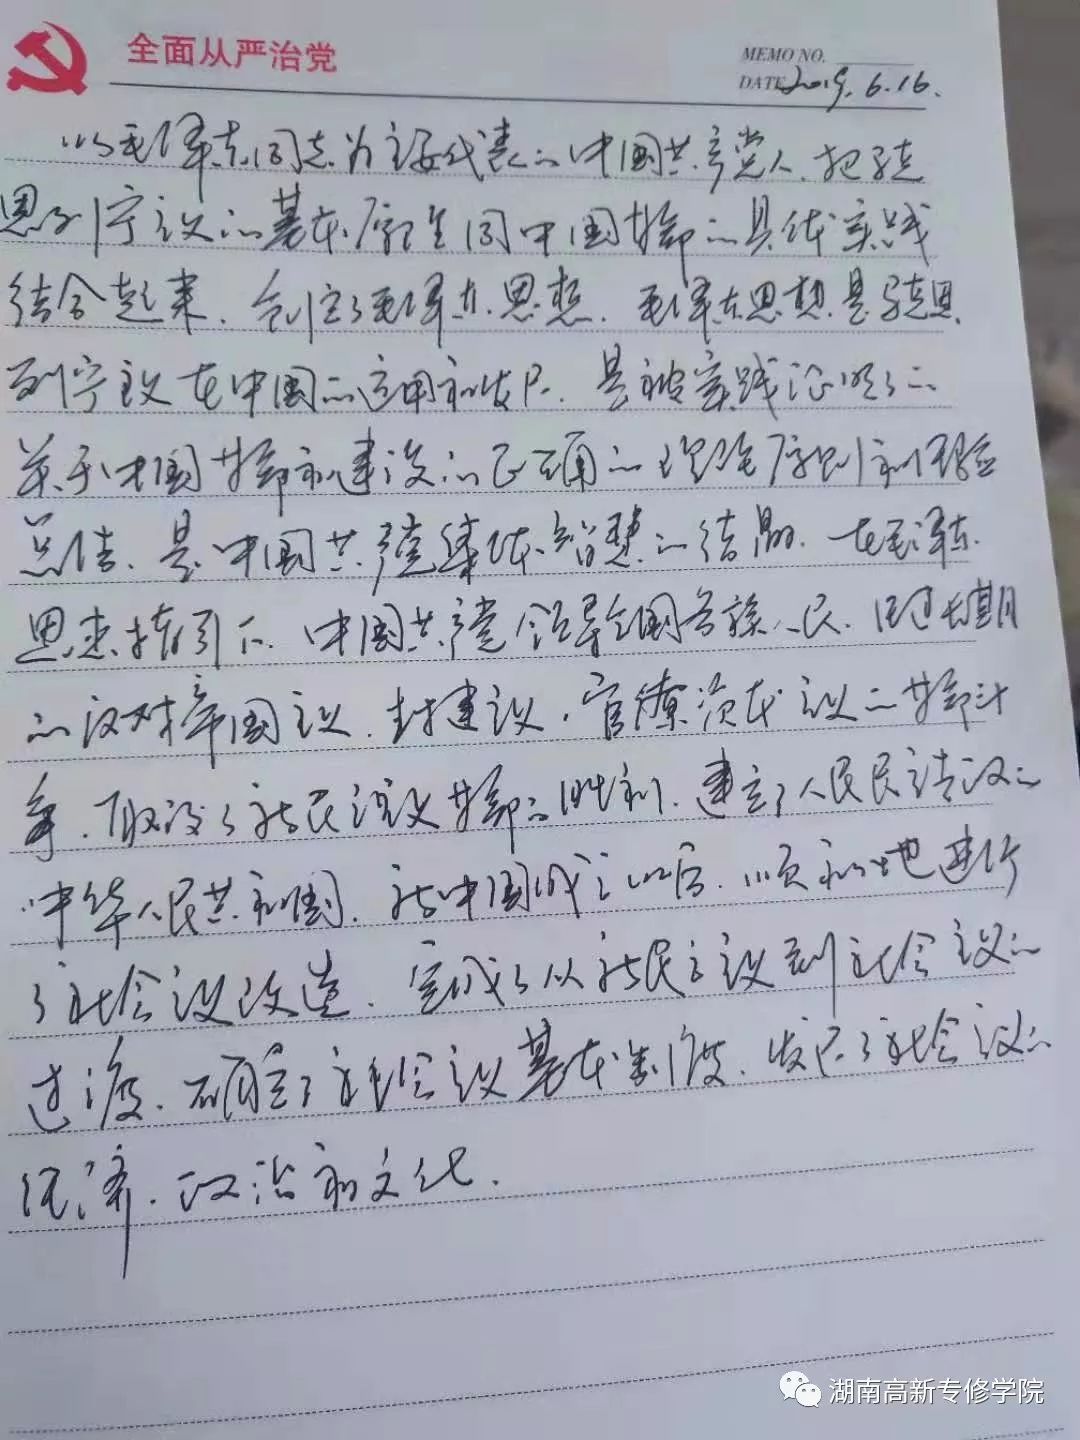 全面从严治党
MEMO NO.
DATE 2019.6.16.
以毛泽东同志为主要代表的中国共产党人，把马克
思列宁主义的基本原理同中国革命的具体实践
结合起来，创立了毛泽东思想，毛泽东思想是马克思
列宁主义在中国的运用和发展，是被实践证明了的
关于中国革命和建设的正确的理论原则和经验
总结，是中国共产党集体智慧的结晶，在毛泽东
思想指引下，中国共产党领导全国各族人民，经过长期
的反对帝国主义、封建主义、官僚资本主义的革命斗
争，取得了新民主主义革命的胜利，建立了人民民主专政的
中华人民共和国，新中国成立以后，顺利地进行
了社会主义改造，完成了从新民主主义到社会主义的
过渡，确立了社会主义基本制度，发展了社会主义的
经济、政治和文化。
湖南高新专修学院